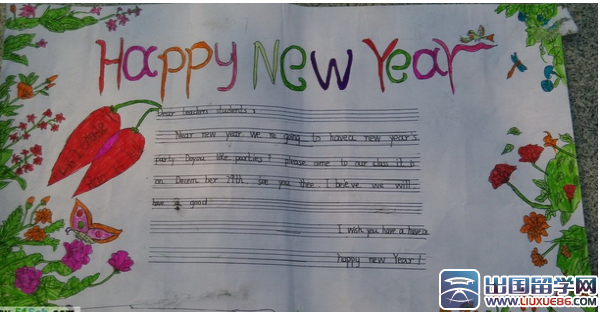 Happy New Year
Dear teachers students :
Near new year we're going to havea new year's
party Doyou like parties? please come to our class it is
on. Decem ber 29th. see you thee. I believe we will
have good
I wish you have a
happy new Year!
出国留学网
WWW.LIUXUE86.COM